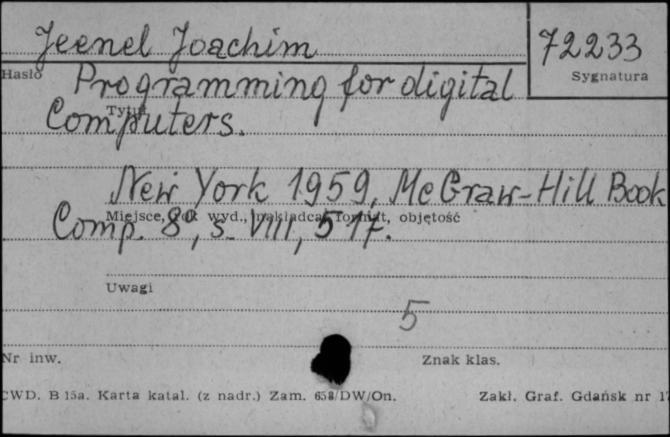 Jeenel Joachim
72233
Hasło
Sygnatura
Programming for digital
Tytuł
Computers.
New York 1959, McGraw-Hill Book
Miejsce, rok wyd., nakładca, format, objętość
Comp. 8°, s. VIII, 517.
Uwagi
5
Nr inw.
Znak klas.
CWD. B 15a. Karta katal. (z nadr.) Zam. 658/DW/On.
Zakł. Graf. Gdańsk nr